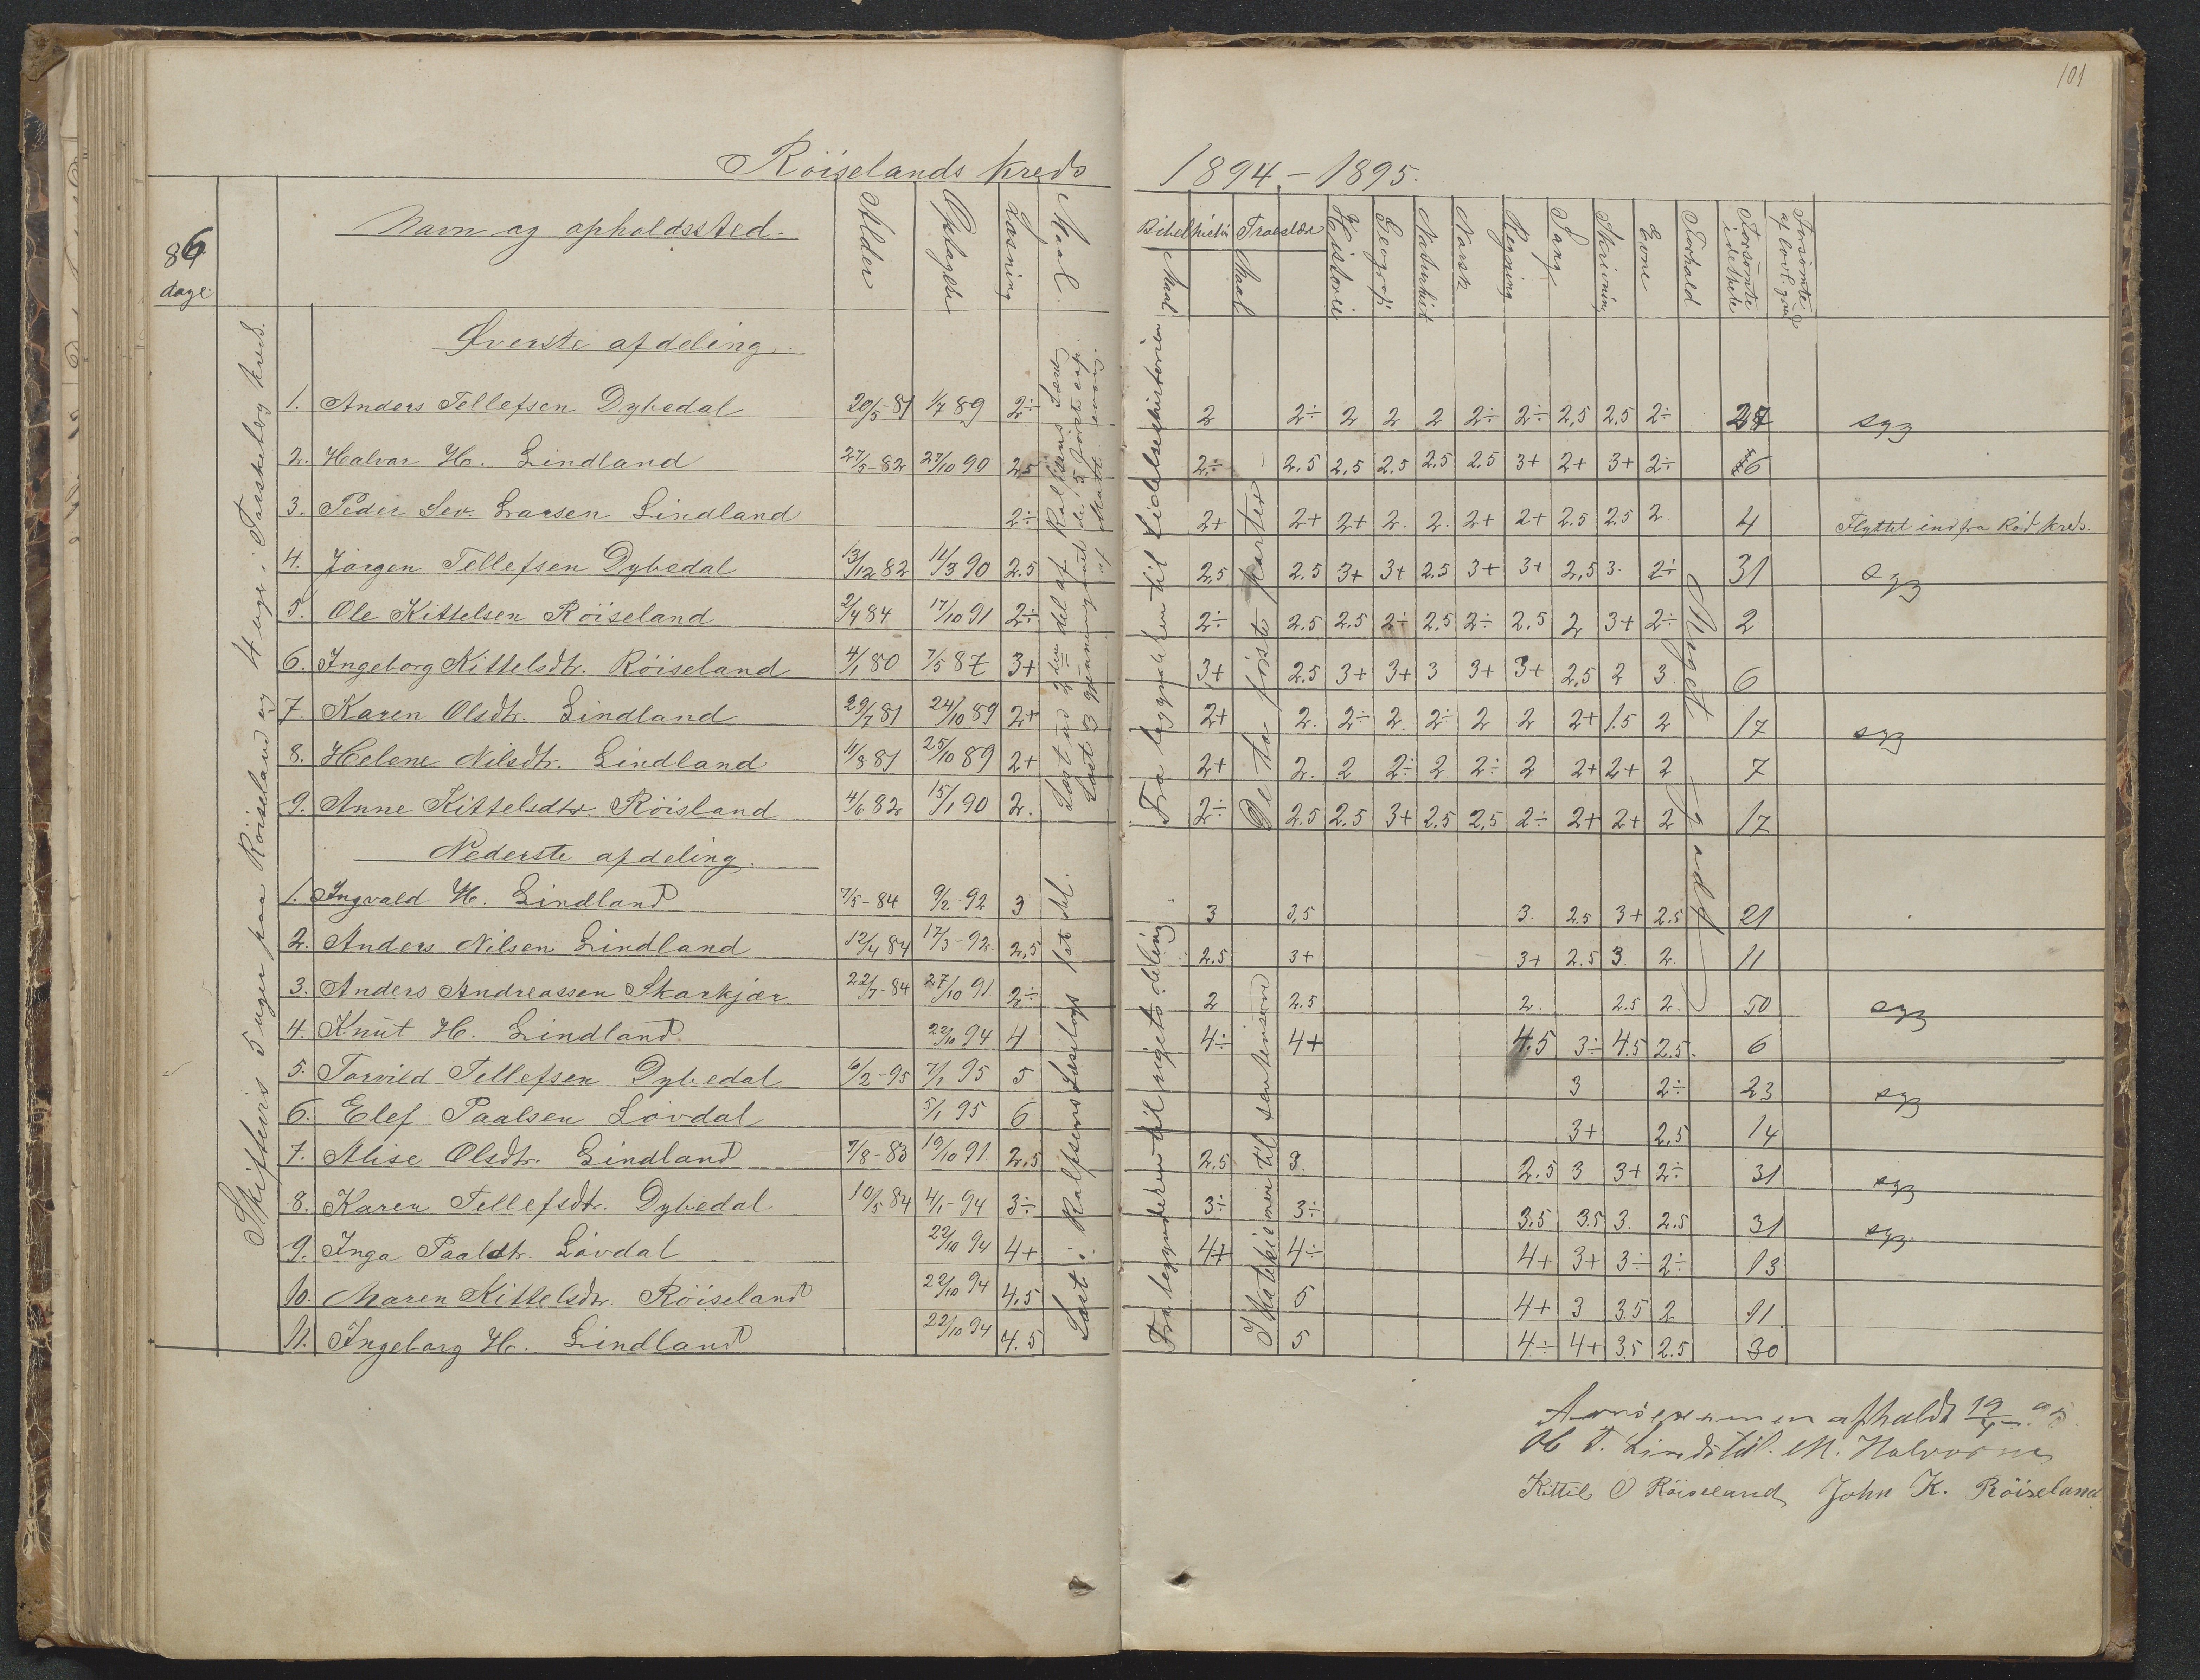 101
Röiselands kreds 1894-1895.
86 dage
Navn og opholdssted.
Alder
Optagelse
Læsning
Maal.
Bibelhistori
Maal
Troeslære
Maal
Historie
Geografi
Naturhist
Norsk
Regning
Sang
Skrivning
Evne
Forhold
Forsømte i det hele
Forsømte af lovl. grund
Skiftevis 5 uger paa Röiseland og 4 uger i Torskeberg kreds.
Øverste afdeling.
1. Anders Tellefsen Dybedal 20/5-81 1/7 89 2÷ 2 2÷ 2 2 2 2÷ 2÷ 2,5 2,5 2÷ 27 syg
2. Halvor H. Lindland 27/5-82 27/10 90 2,5 2÷ 2,5 2,5 2,5 2,5 2,5 3+ 2+ 3+ 2÷ 6
3. Peder Sev. Larsen Lindland 2÷ 2+ 2+ 2+ 2. 2. 2+ 2+ 2.5 2.5 2. 4 Flyttet ind fra Röd kreds.
4. Jörgen Tellefsen Dybedal 13/12 82 11/3 90 2.5 2,5 2.5 3+ 3+ 2.5 3+ 3+ 2,5 3. 2÷ 31 syg
5. Ole Kittelsen Röiseland 2/4 84 17/10 91 2÷ 2÷ 2.5 2.5 2÷ 2,5 2÷ 2,5 2 3+ 2÷ 2
6. Ingeborg Kittelsdtr. Röiseland 4/1 80 7/5 87 3+ 3+ 2.5 3+ 3+ 3 3+ 3+ 2,5 2 3. 6
7. Karen Olsdtr. Lindland 29/7 81 24/10 89 2+ 2+ 2. 2÷ 2. 2÷ 2 2 2+ 1.5 2 17 syg
8. Helene Nilsdtr. Lindland 11/8 81 25/10 89 2+ 2+ 2. 2 2÷ 2 2÷ 2 2+ 2+ 2 7
9. Anne Kittelsdtr. Röisland 4/6 82 15/1 90 2. 2÷ 2.5 2.5 3+ 2.5 2,5 2÷ 2+ 2+ 2 17
Fra begyndelsen til lidelseshistorien
De to første parter
Meget godt
Nederste afdeling.
1. Ingvald H. Lindland 7/5-84 9/2-92 3 3 3,5 3. 2.5 3+ 2.5 21
2. Anders Nilsen Lindland 12/4 84 17/3-92. 2,5 2.5 3+ 3+ 2.5 3. 2. 11
3. Anders Andreassen Skarkjær 22/7-84 27/10 91. 2÷ 2 2.5 2. 2.5 2. 50 syg
4. Knut H. Lindland 22/10 94 4 4÷ 4+ 4.5 3÷ 4.5 2.5. 6
5. Torvild Tellefsen Dybedal 6/2-95 7/1 95 5 3 2÷ 23 syg
6. Elef Paalsen Lövdal 5/1 95 6 3+ 2,5 14
7. Alise Olsdtr. Lindland 7/8-83 19/10 91. 2,5 2.5 3. 2.5 3 3+ 2÷ 31 syg
8. Karen Tellefsdtr. Dybedal 10/5 84 4/1-94 3÷ 3÷ 3÷ 3.5 3.5 3. 2.5 31 syg.
9. Inga Paaldtr. Lövdal 22/10 94 4+ 4+ 4÷ 4+ 3+ 3÷ 2÷ 13
10. Maren Kittelsdtr. Röiseland 22/10 94 4,5 5 4+ 3 3.5 2 11
11. Ingeborg H. Lindland 22/10 94 4.5 5 4÷ 4+ 3.5 2.5 30
Læst i Rolfsens Læsebogs 1ste del.
afholdt 19/
Kittil O Röiseland John K. Röiseland